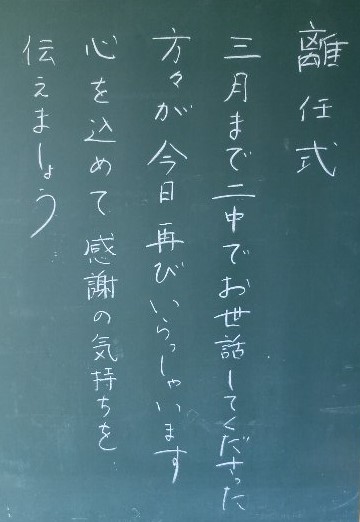 離任式
三月まで二中でお世話してくださった
方々が今日再びいらっしゃいます
心を込めて感謝の気持ちを
伝えましょう